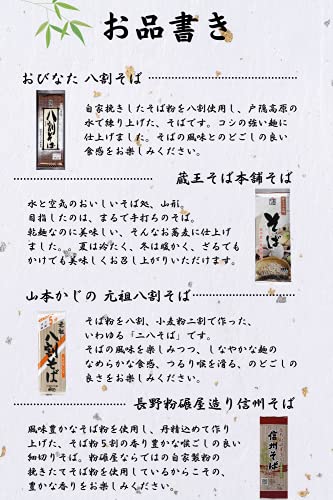 お品書き
おびなた 八割そば
自家挽きしたそば粉を八割使用し、戸隠高原の
水で練り上げた、そばです。コシの強い麺に
仕上げました。そばの風味とのどごしの良い
食感をお楽しみください。
八割そば
蔵王そば本舗そば
水と空気のおいしいそば処、山形
目指したのは、まるで手打ちのそば。
乾麺なのに美味しい、そんなお蕎麦に仕上げ
ました。。夏は冷たく、冬は暖かく、ざるでも
かけても美味しくお召し上がりいただけます。
そば
山本かじの 元祖八割そば
そば粉を八割、小麦粉二割で作った、
いわゆる「二八そば」です。
そばの風味を楽しみつつ、しなやかな麺の
なめらかな食感、つるり喉を滑る、のどごしの
良さをお楽しみください。
元祖
八割そば
長野粉碾屋造り信州そば
風味豊かなそば粉を使用し、丹精込めて作り
上げた、そば粉5割の香り豊かな喉ごしの良い
細切りそば。粉碾屋ならではの自家製粉の
挽きたてそば粉を使用しているからこその、
豊かな香りをお楽しみください。
信州そば